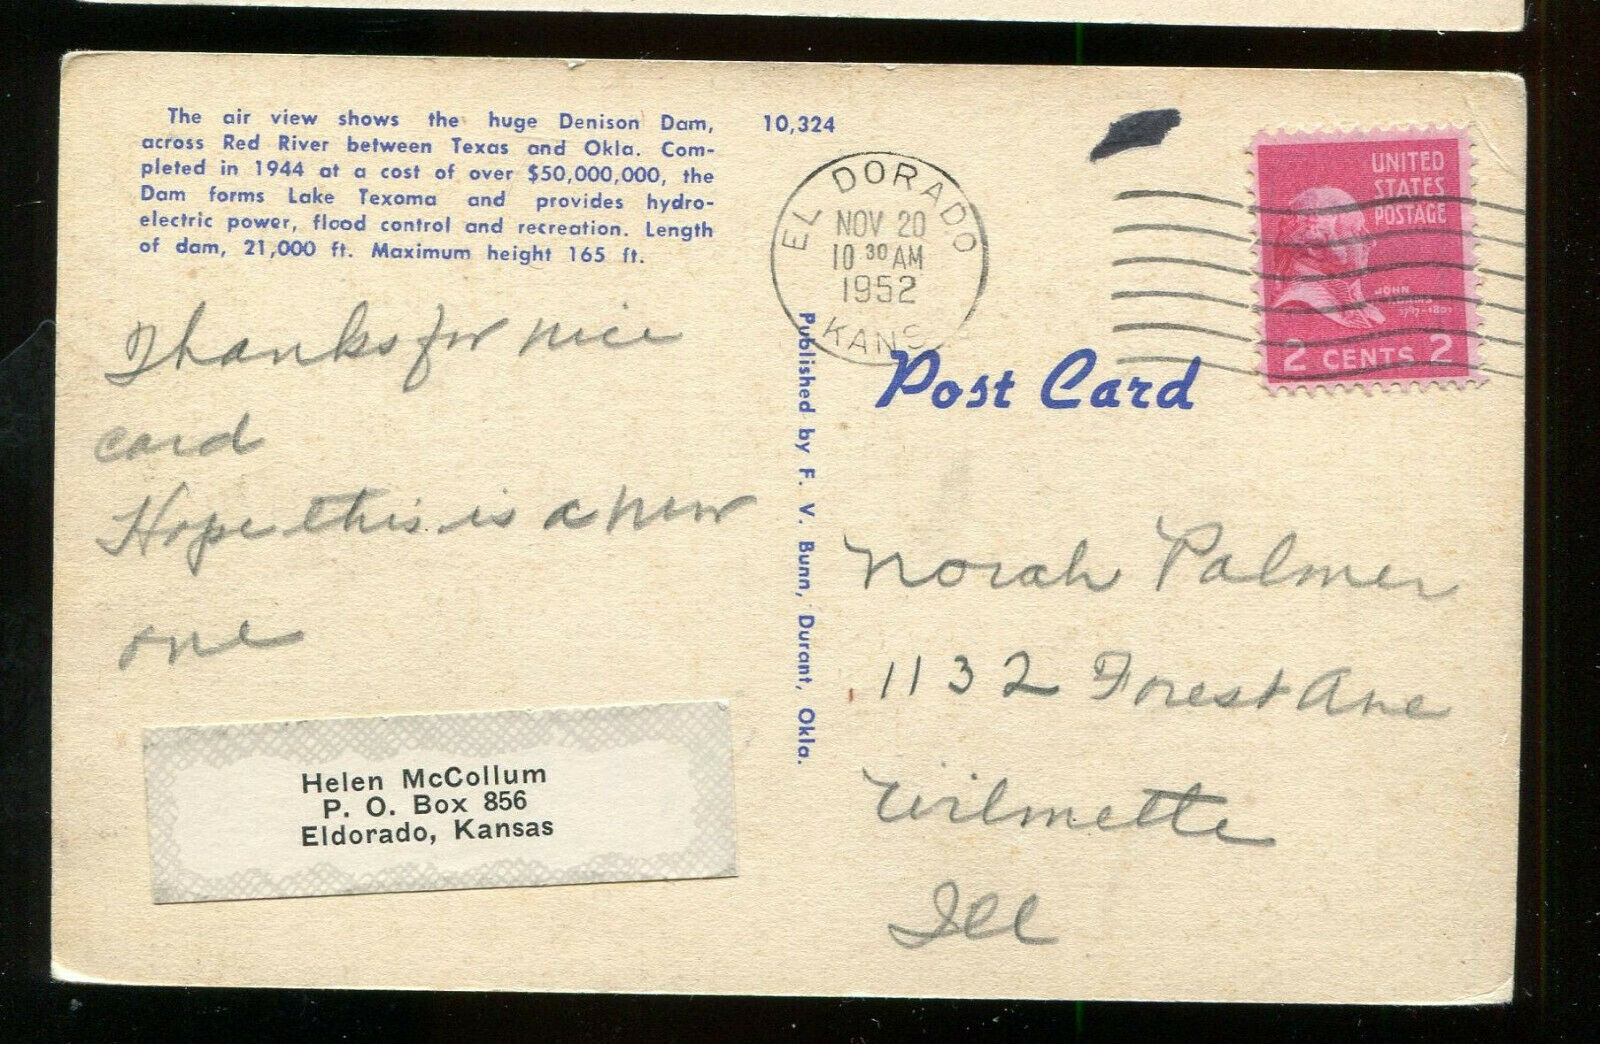 The air view shows the huge Denison Dam,
across Red River between Texas and Okla. Com-
pleted in 1944 at a cost of over $50,000,000, the
Dam forms Lake Texoma and provides hydro-
electric power, flood control and recreation. Length
of dam, 21,000 ft. Maximum height 165 ft.
10,324
Thanks for nice
card
Hope this is a new
one
Helen McCollum
P. O. Box 856
Eldorado, Kansas
Published by F. V. Bunn, Durant, Okla.
EL DORADO
NOV 20
10 30 AM
1952
KANS
UNITED
STATES
POSTAGE
JOHN
ADAMS
1797-1801
2 CENTS 2
Post Card
Norah Palmer
1132 Forest Ave
Wilmette
Ill